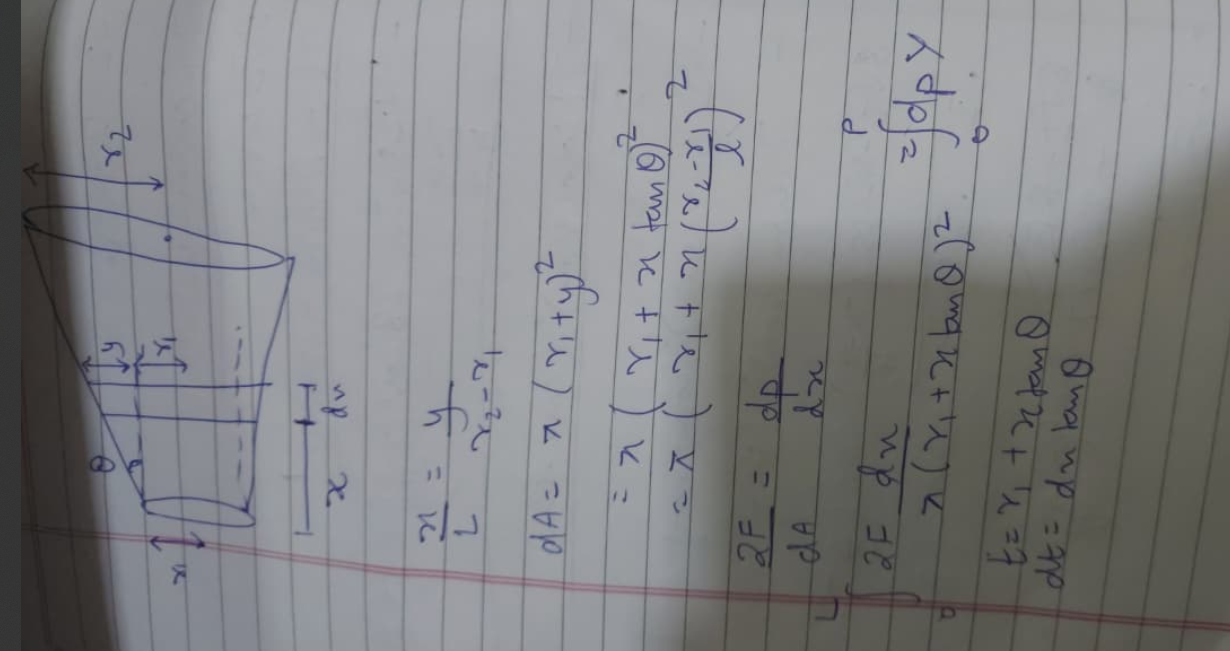 r₂
y
r₁
θ
r₁
x dx
x/L = y/(r₂-r₁)
dA = π (r₁+y)²
= π ( r₁ + x tanθ)²
= π ( r₁ + x (r₂-r₁)/l )²
2F/dA = dp/dx
∫₀ᴸ 2F dx/π(r₁+x tanθ)² = ∫₀ᴾ dp Y
t = r₁ + x tanθ
dt = dx tanθ